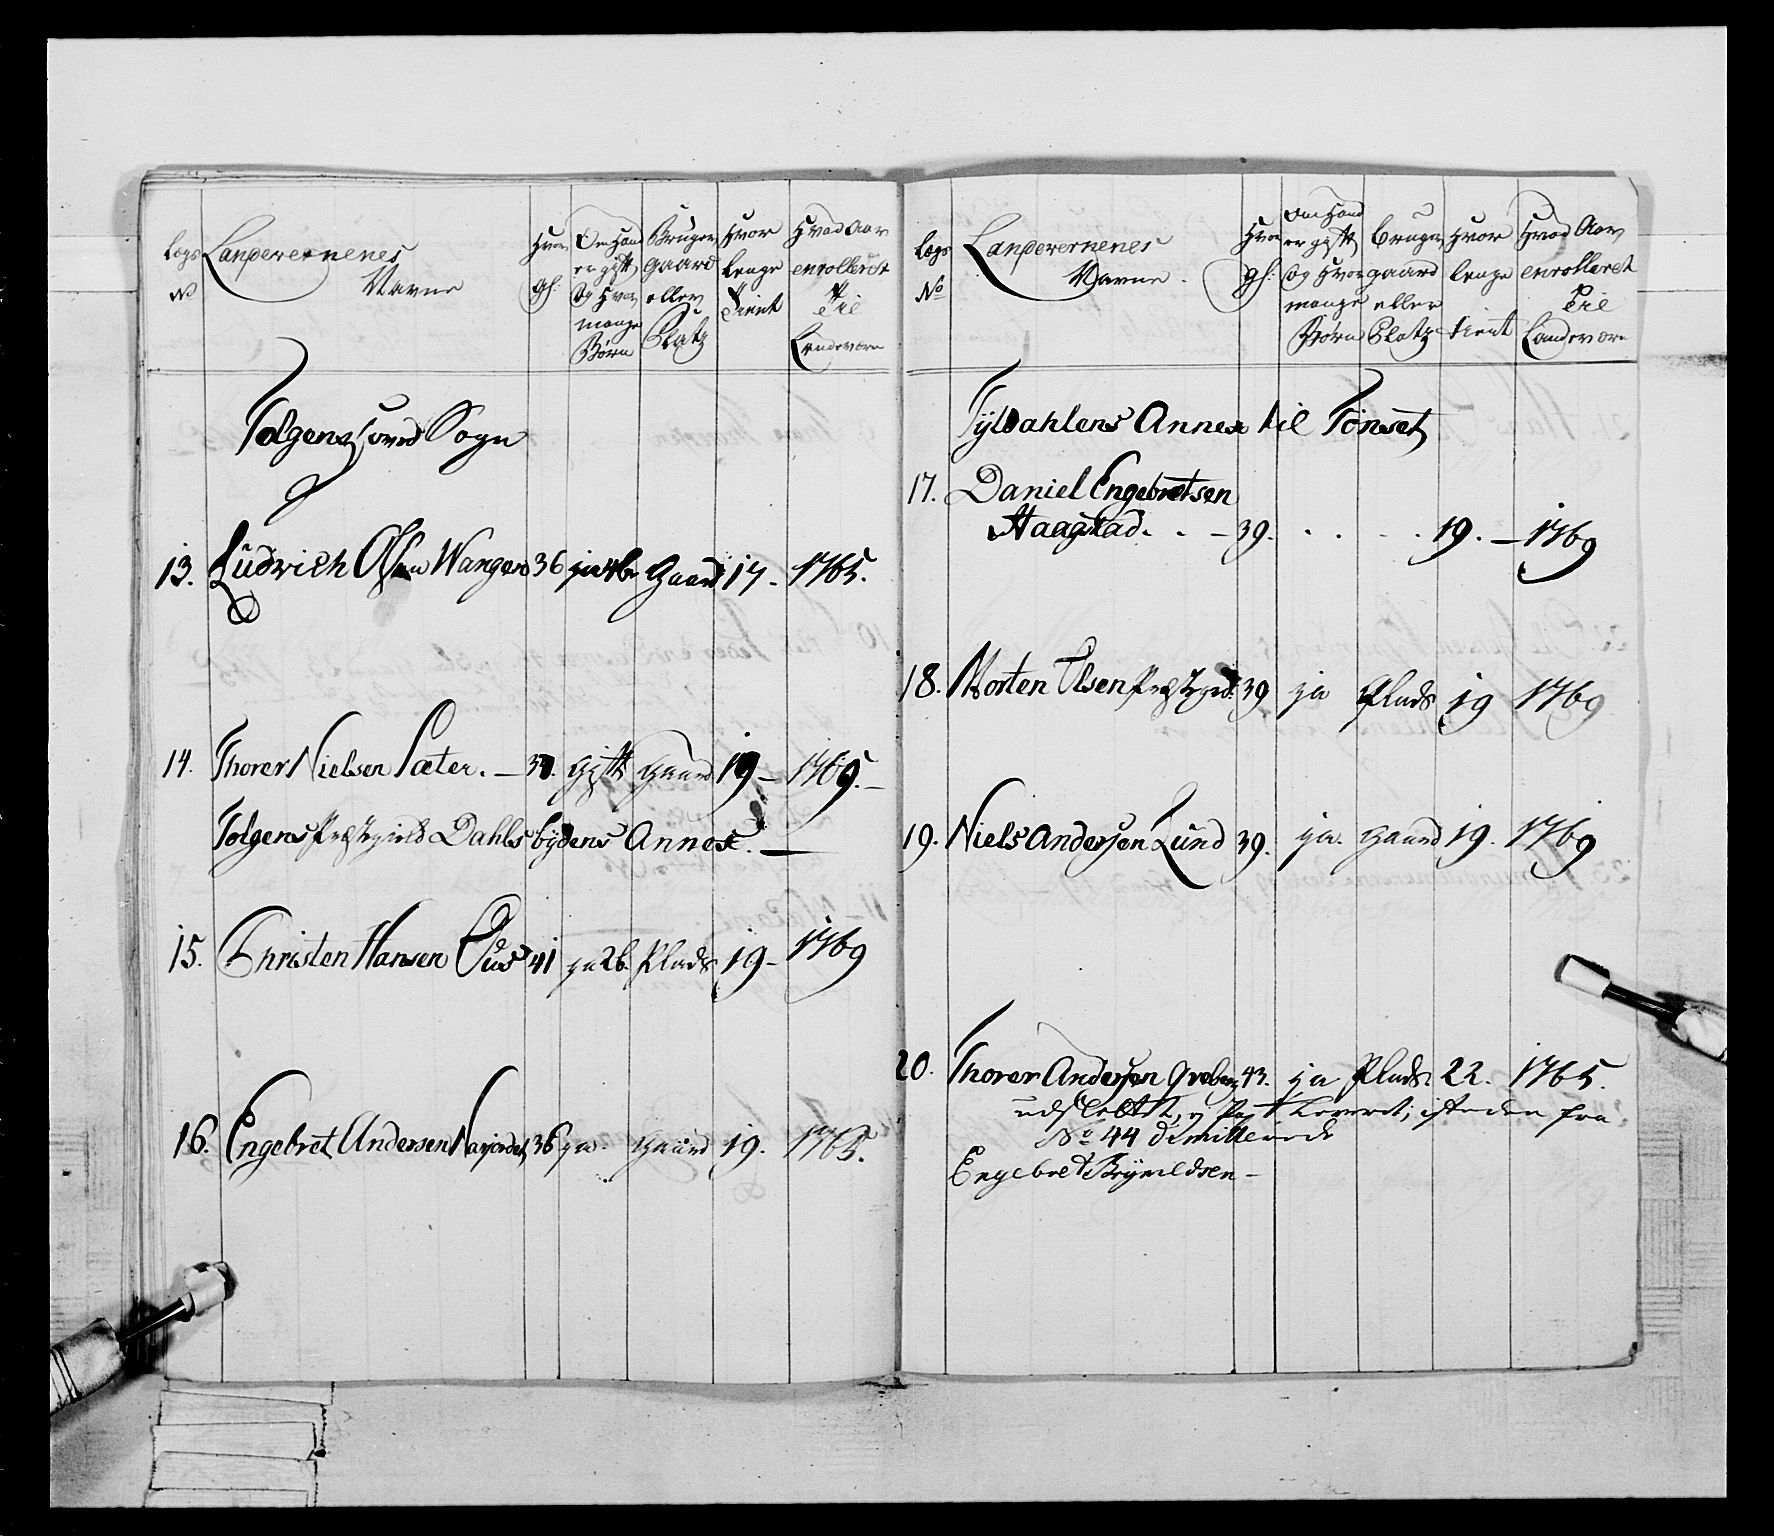 Lægs
No
Landeværnenes
Navne
Hvor
gl:
Om Hand
er gift
og Hvor
mange
Børn
Bruger
gaard
eller
Platz
Hvor
lenge
Tient
Hvad Aar
enrolleret
til
Landeværn
Tolgens hoved Sogn
13. Ludvich Olsen Wangen 36 ja 4b Gaard 17. 1765.
14. Thorer Nielsen Sæter. — gift gaard 19 — 1769. —
Tolgens Præstegield Dahlsbydens Annex. —
15. Christen Hansen 41 ja 2b. Plads 19 - 1769
16. Engebret Andersen Narjordet 36 ja. Gaard 19. 1765.
Lægs
No
Landeværnenes
Navne.
Hvor
gl:
Om Hand
er gift
og Hvor
mange
Børn
Bruger
gaard
eller
Platz
Hvor
lenge
tient
Hvad Aar
enrolleret
til
Landeværn
Tyldahlens Annex til Tønset
17. Daniel Engebretsen
Haagstad. . - 39. . . . . 19. — 1769
18. Morten Olsen 39 ja Plads 19 1769
19. Niels Andersen Lund 39. ja. gaard 19. 1769
20. Thorer Andersen 43. ja Plads. 22. 1765.
udslettet, isteden fra
No 44 dimitterede
Engebret Brynildsen —